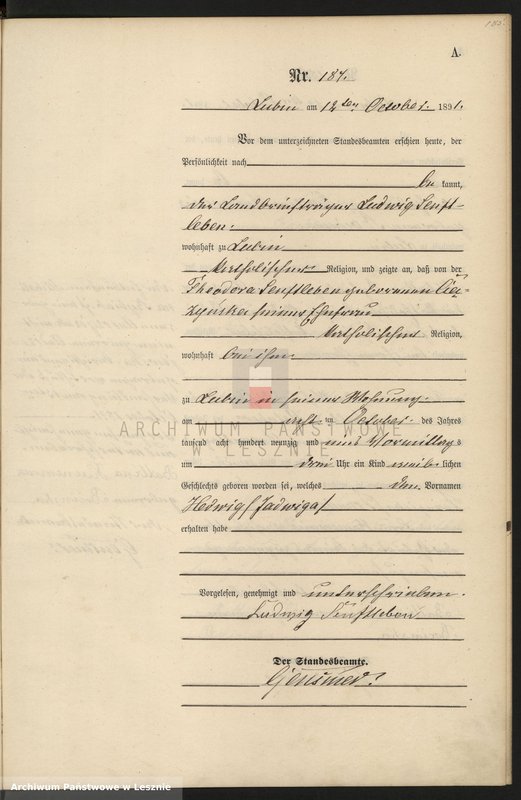 185.
A.
Nr. 184.
Lubin am 12ten October 1891.
Vor dem unterzeichneten Standesbeamten erschien heute, der
Persönlichkeit nach
be kannt,
der Landbriefträger Ludwig Senft-
leben
wohnhaft zu Lubin
katholischer Religion, und zeigte an, daß von der
Theodora Senftleben geborenen
seiner Ehefrau
katholischer Religion,
wohnhaft bei ihm
zu Lubin in seiner Wohnung
am acht ten October des Jahres
tausend acht hundert neunzig und eins Vormittags
um drei Uhr ein Kind weib lichen
Geschlechts geboren worden sei, welches den Vornamen
Hedwig (Jadwiga)
erhalten habe
Vorgelesen, genehmigt und unterschrieben.
Ludwig Senftleben
Der Standesbeamte.
ARCHIWUM PAŃSTWOWE
W LESZNIE
Archiwum Państwowe w Lesznie